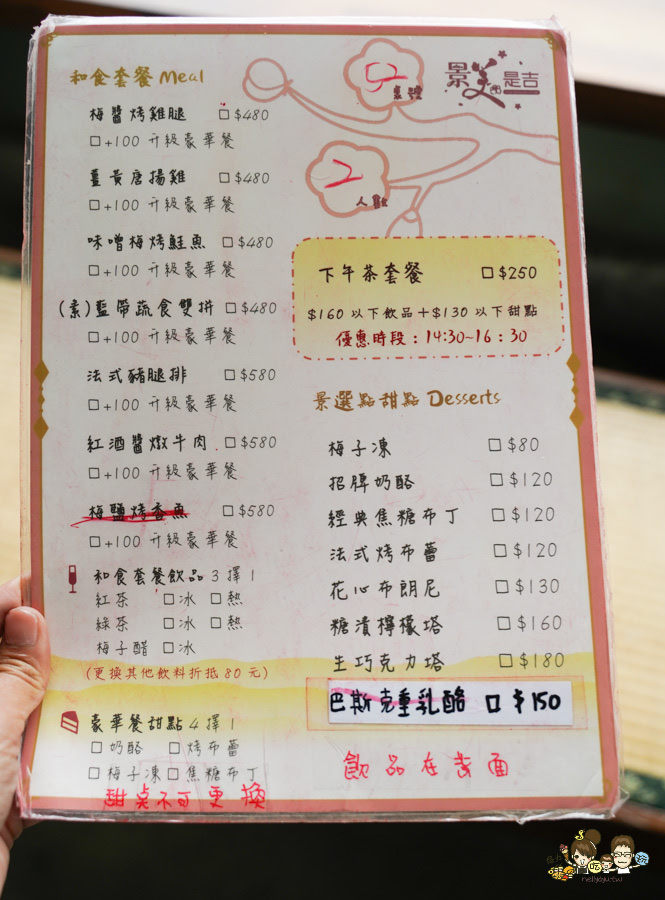 和食套餐 Meal
梅醬烤雞腿 □ $480
□+100 升級豪華餐
薑黃唐揚雞 □ $480
□+100 升級豪華餐
味噌梅烤鮭魚 □ $480
□+100 升級豪華餐
(素)藍帶蔬食雙拼 □ $480
□+100 升級豪華餐
法式豬腿排 □ $580
□+100 升級豪華餐
紅酒醬燉牛肉 □ $580
□+100 升級豪華餐
梅鹽烤香魚 □ $580
□+100 升級豪華餐
和食套餐飲品 3 擇 1
紅茶 □冰 □熱
綠茶 □冰 □熱
梅子醋 □冰
(更換其他飲料折抵 80 元)
豪華餐甜點 4 擇 1
□ 奶酪 □ 烤布蕾
□ 梅子凍 □ 焦糖布丁
甜點不可更換
景美是吉
桌號
2
人數
下午茶套餐 □ $250
$160 以下飲品+$130 以下甜點
優惠時段:14:30~16:30
景選點甜點 Desserts
梅子凍 □ $80
招牌奶酪 □ $120
經典焦糖布丁 □ $120
法式烤布蕾 □ $120
花心布朗尼 □ $130
糖漬檸檬塔 □ $160
生巧克力塔 □ $180
巴斯克重乳酪 □ $150
飲品在背面
neliyoyu.tw